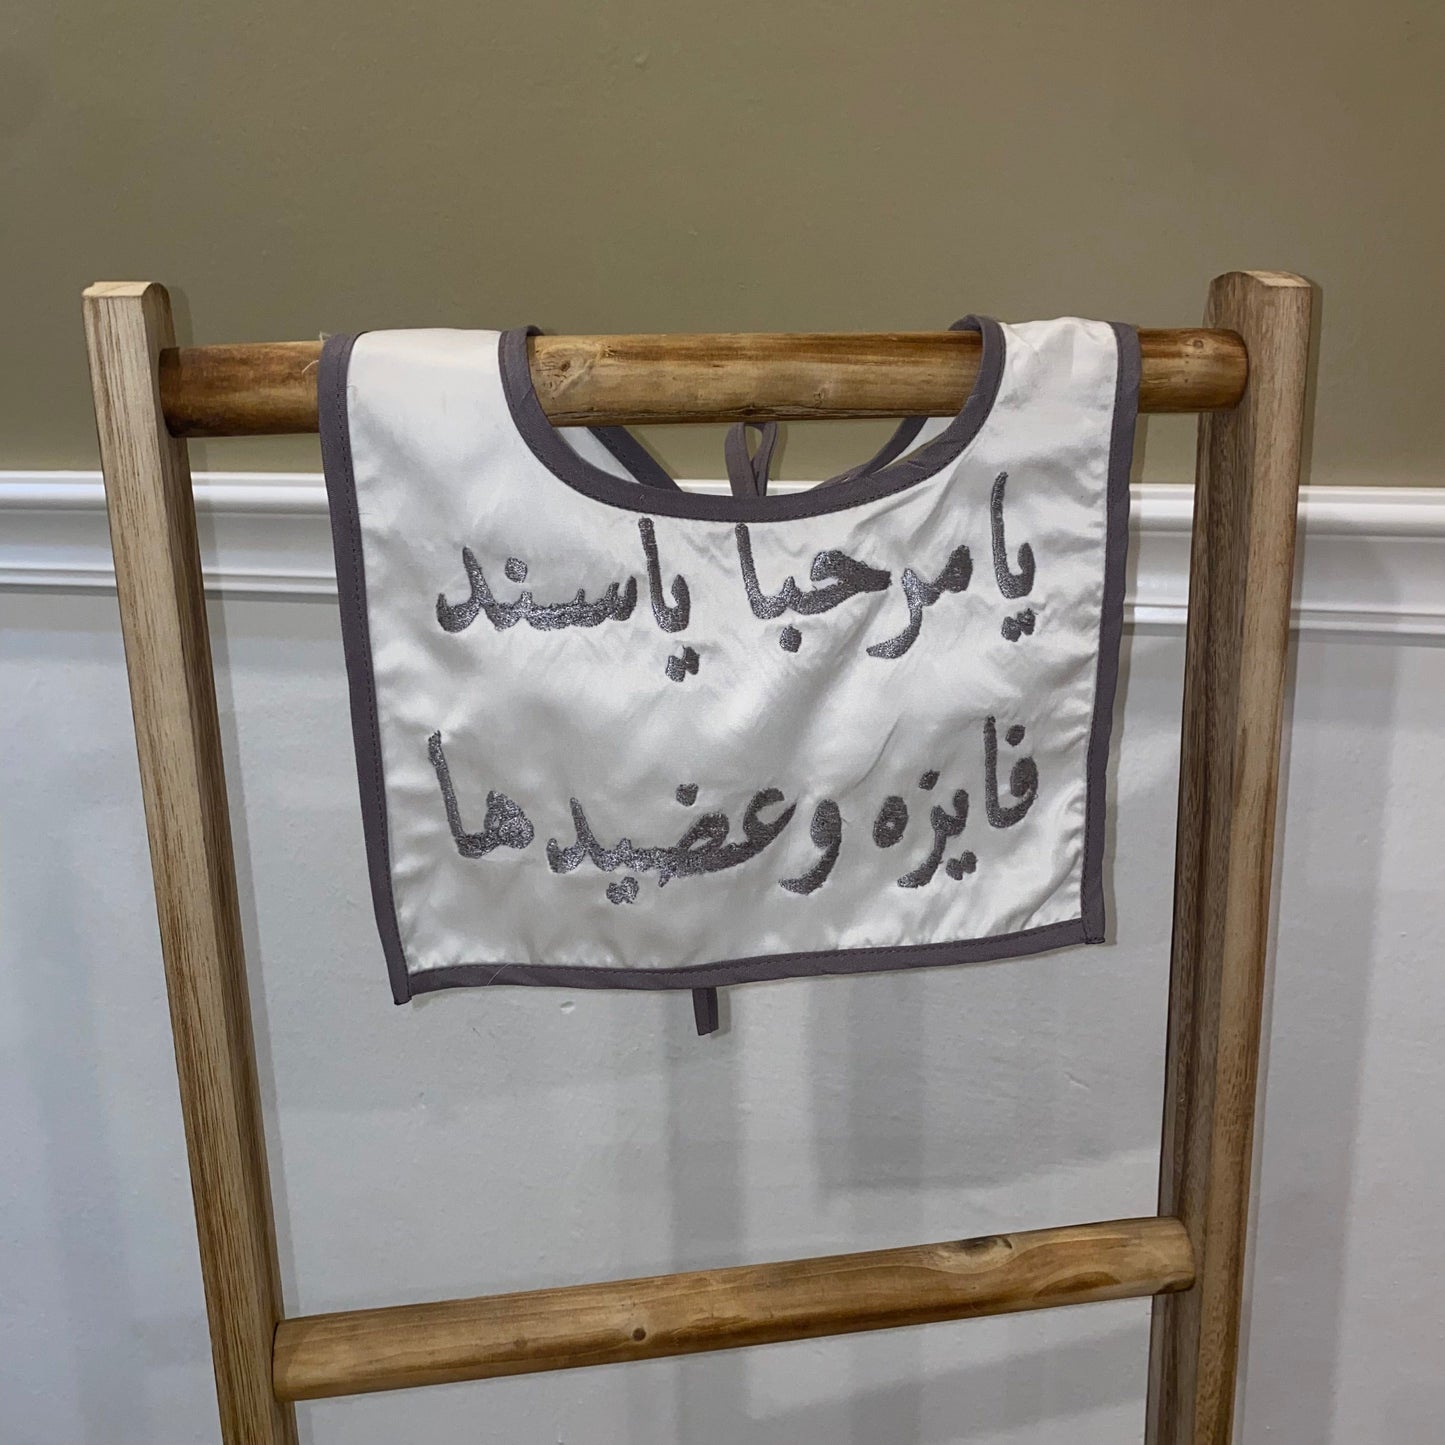 يا مرحبا ياسند
فايزه وعضيدها